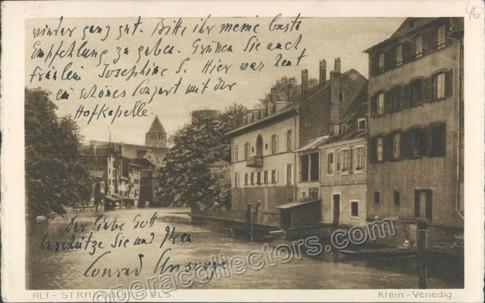 wieder ganz gut. Bitte ihr meine beste
Empfehlung zu geben. Grüßen Sie auch
Fräulein Josephine S. Hier war heut
ein schönes Konzert mit der
Hofkapelle.
Der liebe Gott
beschütze Sie und Ihre
Conrad Ansorge
ALT-STRASSBURG
Klein-Venedig.
operacollectors.com